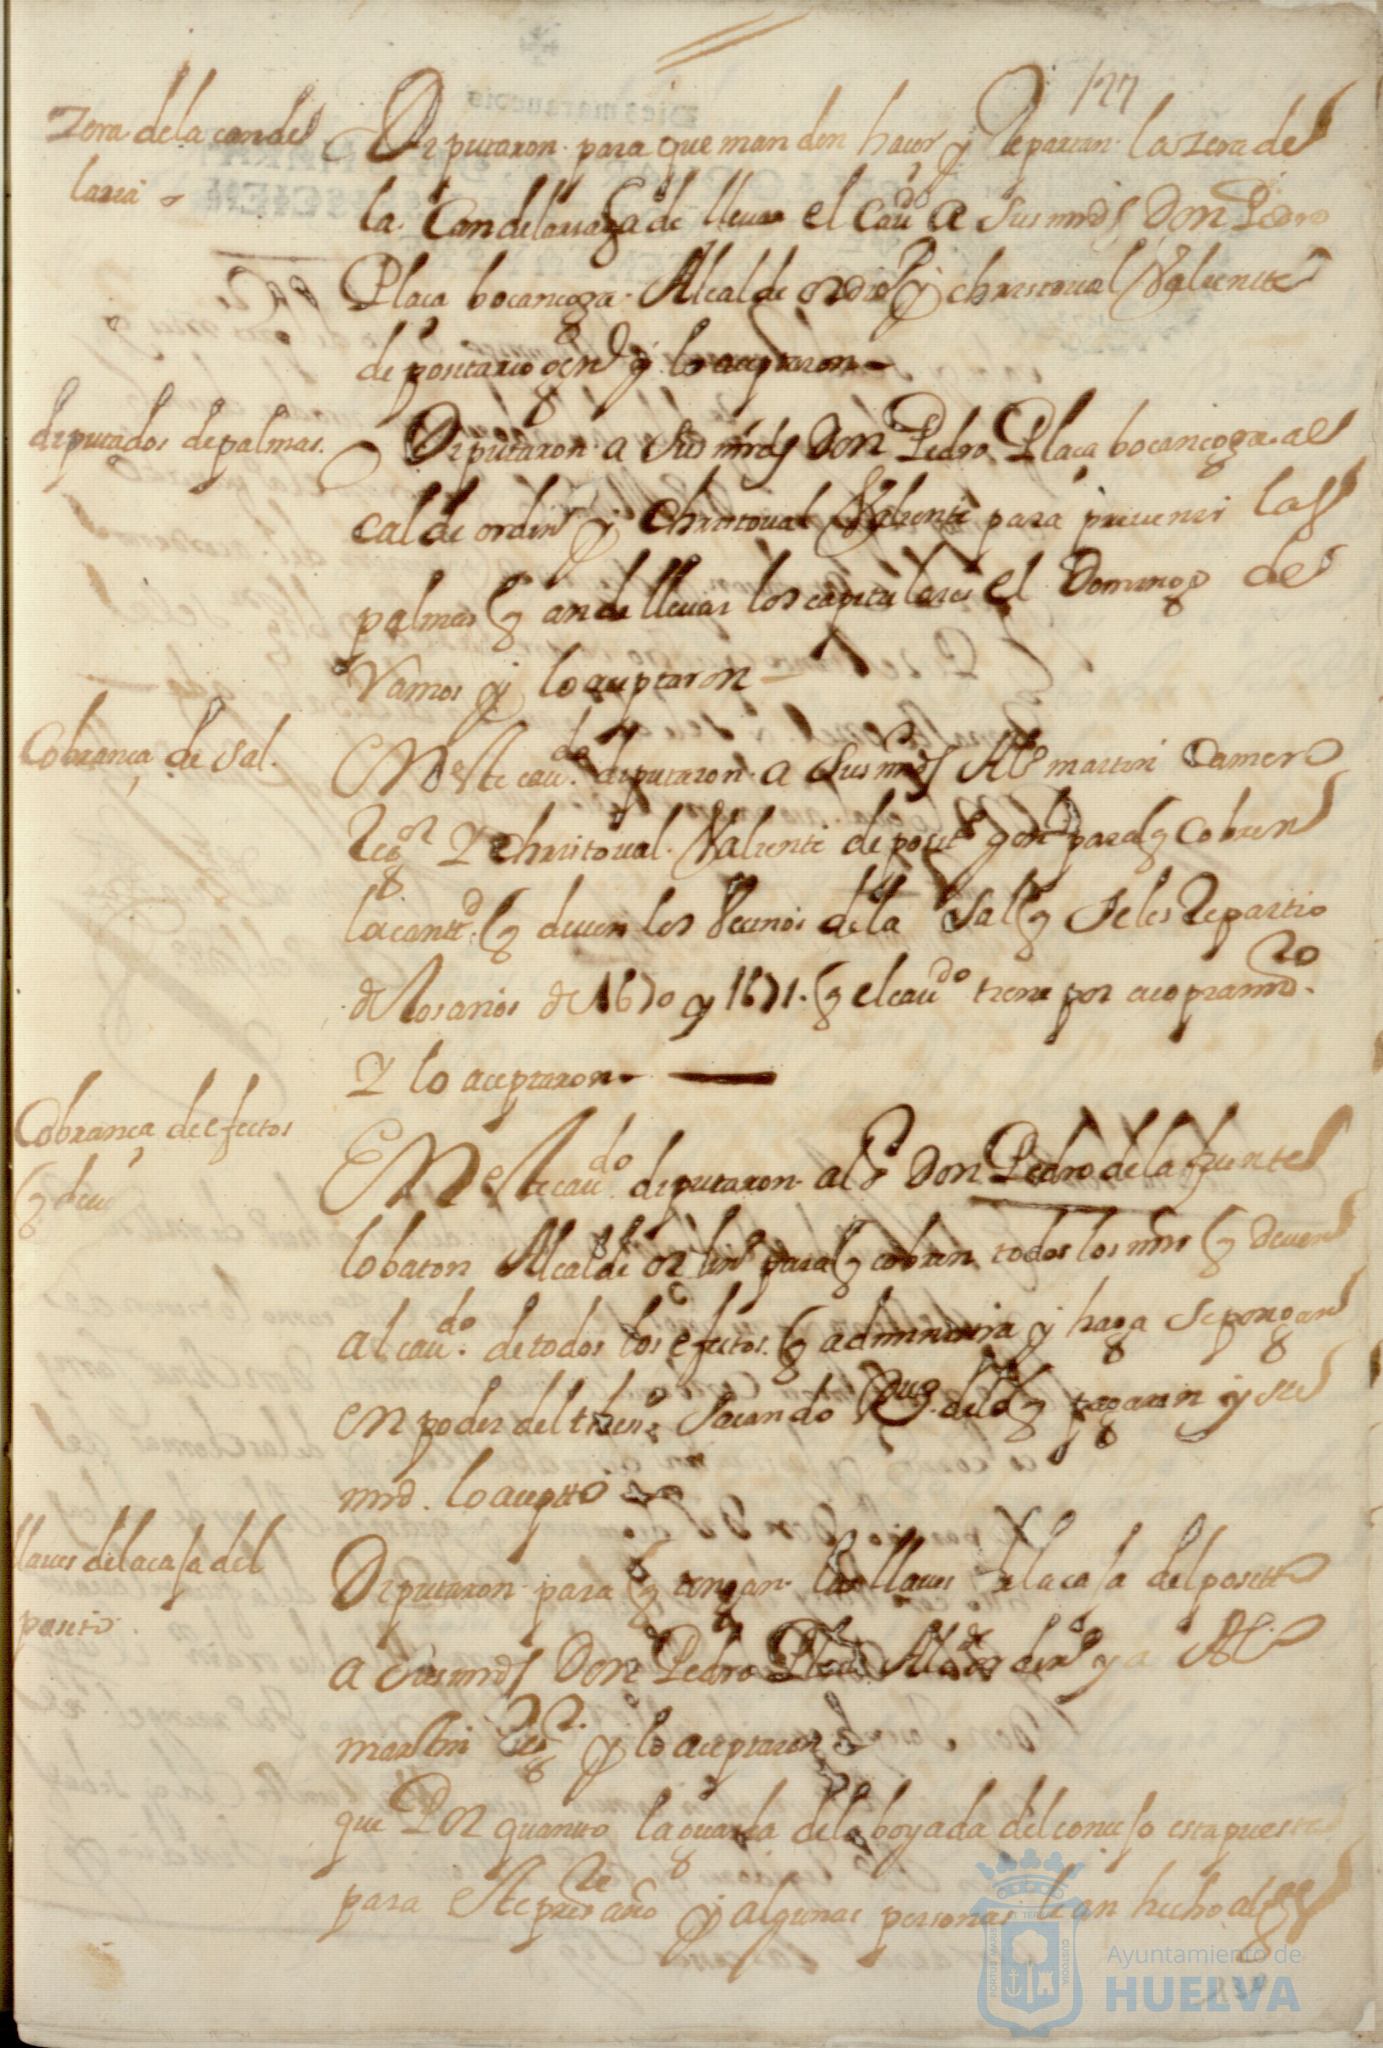 127
Zera de la cande
laria
Diputaron para que manden hacer y Repartan la zera de
la Candelaria q a de llevar el Cavdo a Sus mrds Don Pedro
Plaça bocanegra Alcalde ordio y christoval Valiente
depositario genl y lo aceptaron
diputados de palmas.
Diputaron a Sus mrds Don Pedro Plaça bocanegra al
calde ordino y Christoval Valiente para prevenir las
palmas q an de llevar los capitulares el Domingo de
Ramos y lo aceptaron
Cobrança de sal.
En este cavdo diputaron a Sus mrds Alo martin Camero
Regor Y Christoval Valiente deposito genl para q Cobren
la cantd q deven los Vecinos de la Sal q Se les Repartio
de los años de 1670 y 1671. q el cavdo tiene por
Y lo aceptaron
Cobrança de efectos
q deve
En este cavdo diputaron al Sr Don Pedro de la fuente
lobaton Alcalde ordino para q cobren todos los mrs q deven
al cavdo de todos los efectos q administra y haga Se pongan
en poder del Sacando de lo q pagaren y su
md lo acepto
llaves de la casa del
posito
Diputaron para q tengan las llaves de la casa del posito
a Sus mrds Don Pedro Plaça Alcde ordino y a Alo
martin Regor y lo aceptaron
que Por quanto la guarda de la boyada del concejo esta puesta
para este preste año y algunas personas han hecho
Ayuntamiento de
HUELVA